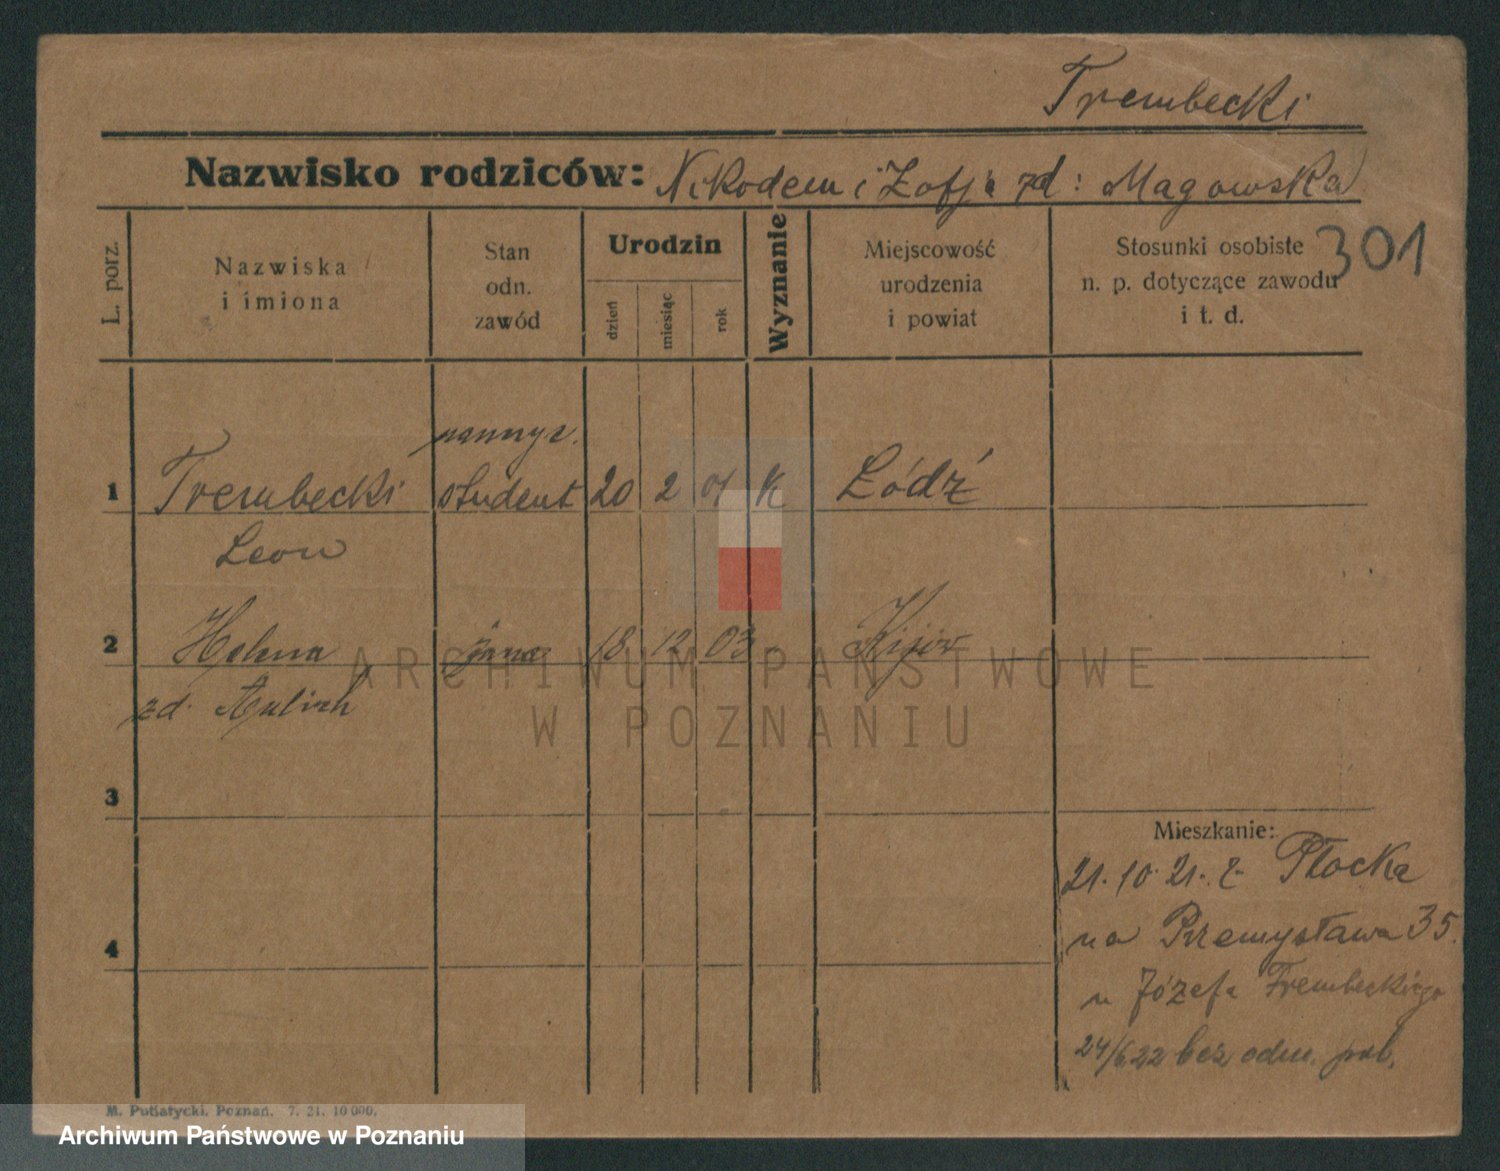 Trembecki
Nazwisko rodziców: Nikodem i Zofja zd: Magowska
301
L. porz.
Nazwiska
i imiona
Stan
odn.
zawód
Urodzin
dzień
miesiąc
rok
Wyznanie
Miejscowość
urodzenia
i powiat
Stosunki osobiste
n. p. dotyczące zawodu
i t. d.
1 Trembecki student 20 2 01 K Łódź
Leon
2 Helena żona 18 12 03 Kijów
zd.
3
4
Mieszkanie:
21. 10. 21. z Płocka
na Przemysława 35.
u Józefa Trembeckiego
24/6 22 bez odm. pob.
M. Putiatycki, Poznań. 7. 21. 10 000.
ARCHIWUM PAŃSTWOWE
W POZNANIU
Archiwum Państwowe w Poznaniu